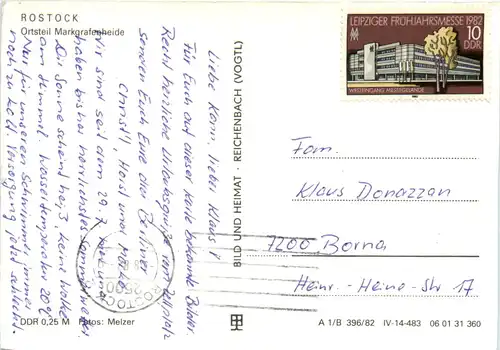 ROSTOCK
Ortsteil Markgrafenheide
Liebe Karin, lieber Klaus!
Für Euch auf dieser Karte bekannte Bilder.
Recht herzliche Urlaubsgrüße vom Zeltplatz
senden Euch Eure drei Berliner
Christl, Horst und Marko
Wir sind seit dem 29.7. hier und
haben bisher herrliches Sommerwetter.
Die Sonne scheint bei 3, keine Wolke
am Himmel. Wassertemperatur 20°
Nur für unseren Schwimmer immer
noch zu kalt. Versorgung jetzt
DDR 0,25 M Fotos: Melzer
BILD UND HEIMAT · REICHENBACH (VOGTL)
LEIPZIGER FRÜHJAHRSMESSE 1982
10
DDR
WESTEINGANG MESSEGELÄNDE
ROSTOCK
2500
Fam.
Klaus Donazzan
7200 Borna
Heinr.-Heine-Str 17
A 1/B 396/82 IV-14-483 06 01 31 360